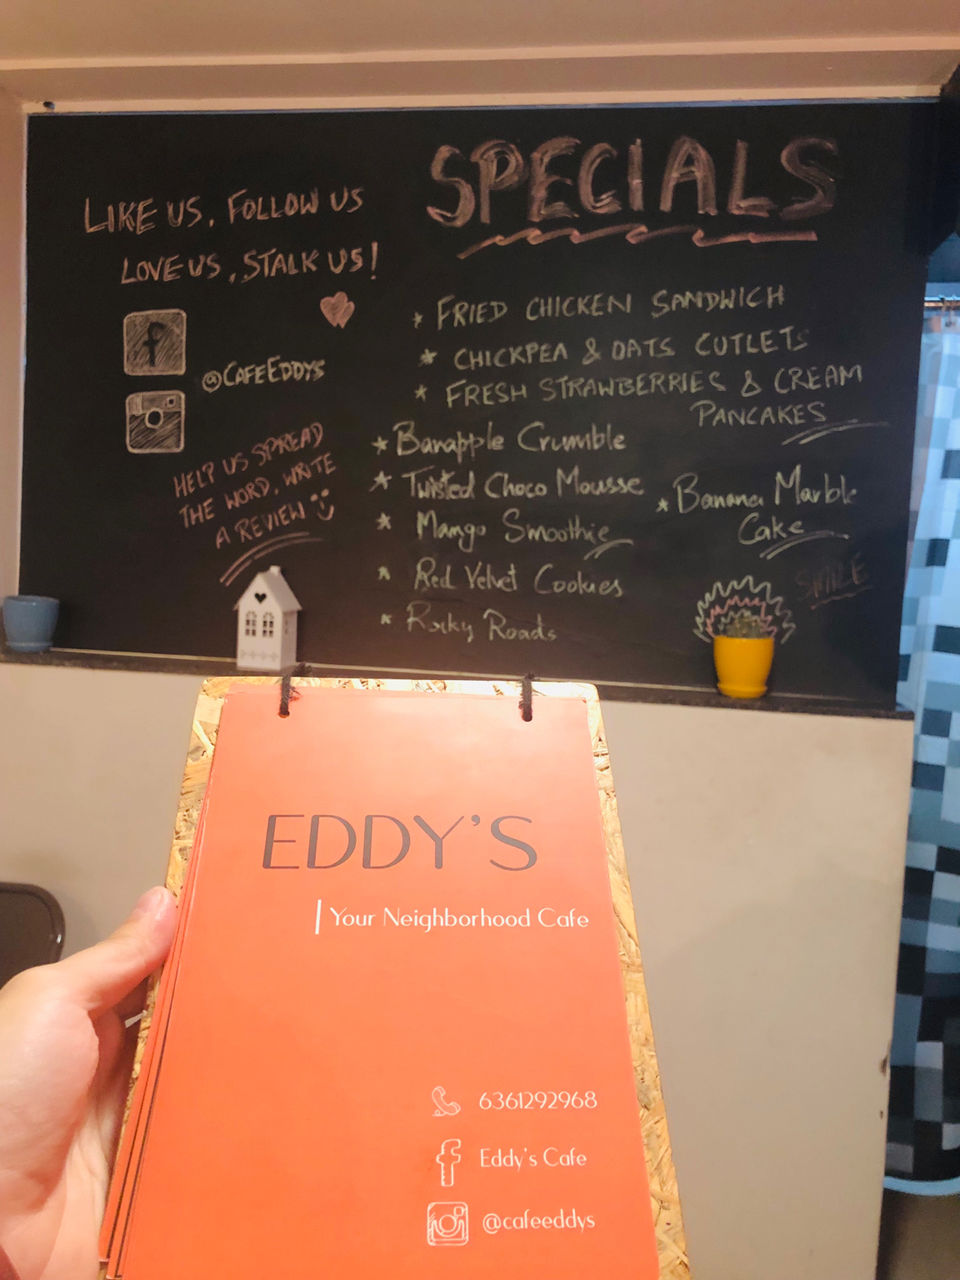 SPECIALS
LIKE US, FOLLOW US
LOVE US, STALK US!
@CAFEEDDYS
HELP US SPREAD
THE WORD, WRITE
A REVIEW
* FRIED CHICKEN SANDWICH
* CHICKPEA & OATS CUTLETS
* FRESH STRAWBERRIES & CREAM
PANCAKES
* Banapple Crumble
* Twisted Choco Mousse
* Mango Smoothie
* Red Velvet Cookies
* Rocky Roads
* Banana Marble
Cake
SMILE
EDDY'S
Your Neighborhood Cafe
6361292968
Eddy's Cafe
@cafeeddys